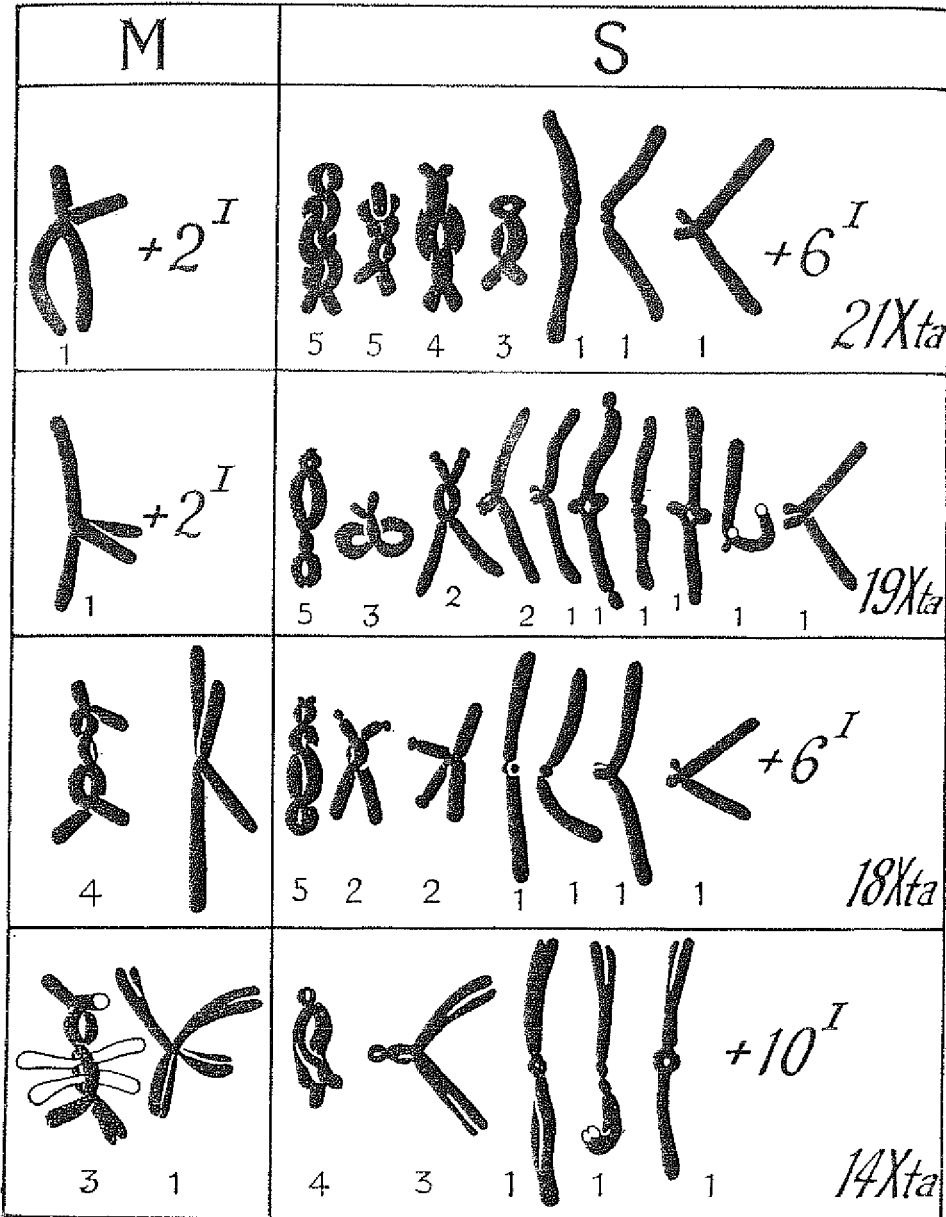 M S
+2 I +6 I
1 5 5 4 3 1 1 1 21Xta
+2 I
1 5 3 2 2 1 1 1 1 1 1 19Xta
+6 I
4 5 2 2 1 1 1 1 18Xta
+10 I
3 1 4 3 1 1 1 14Xta